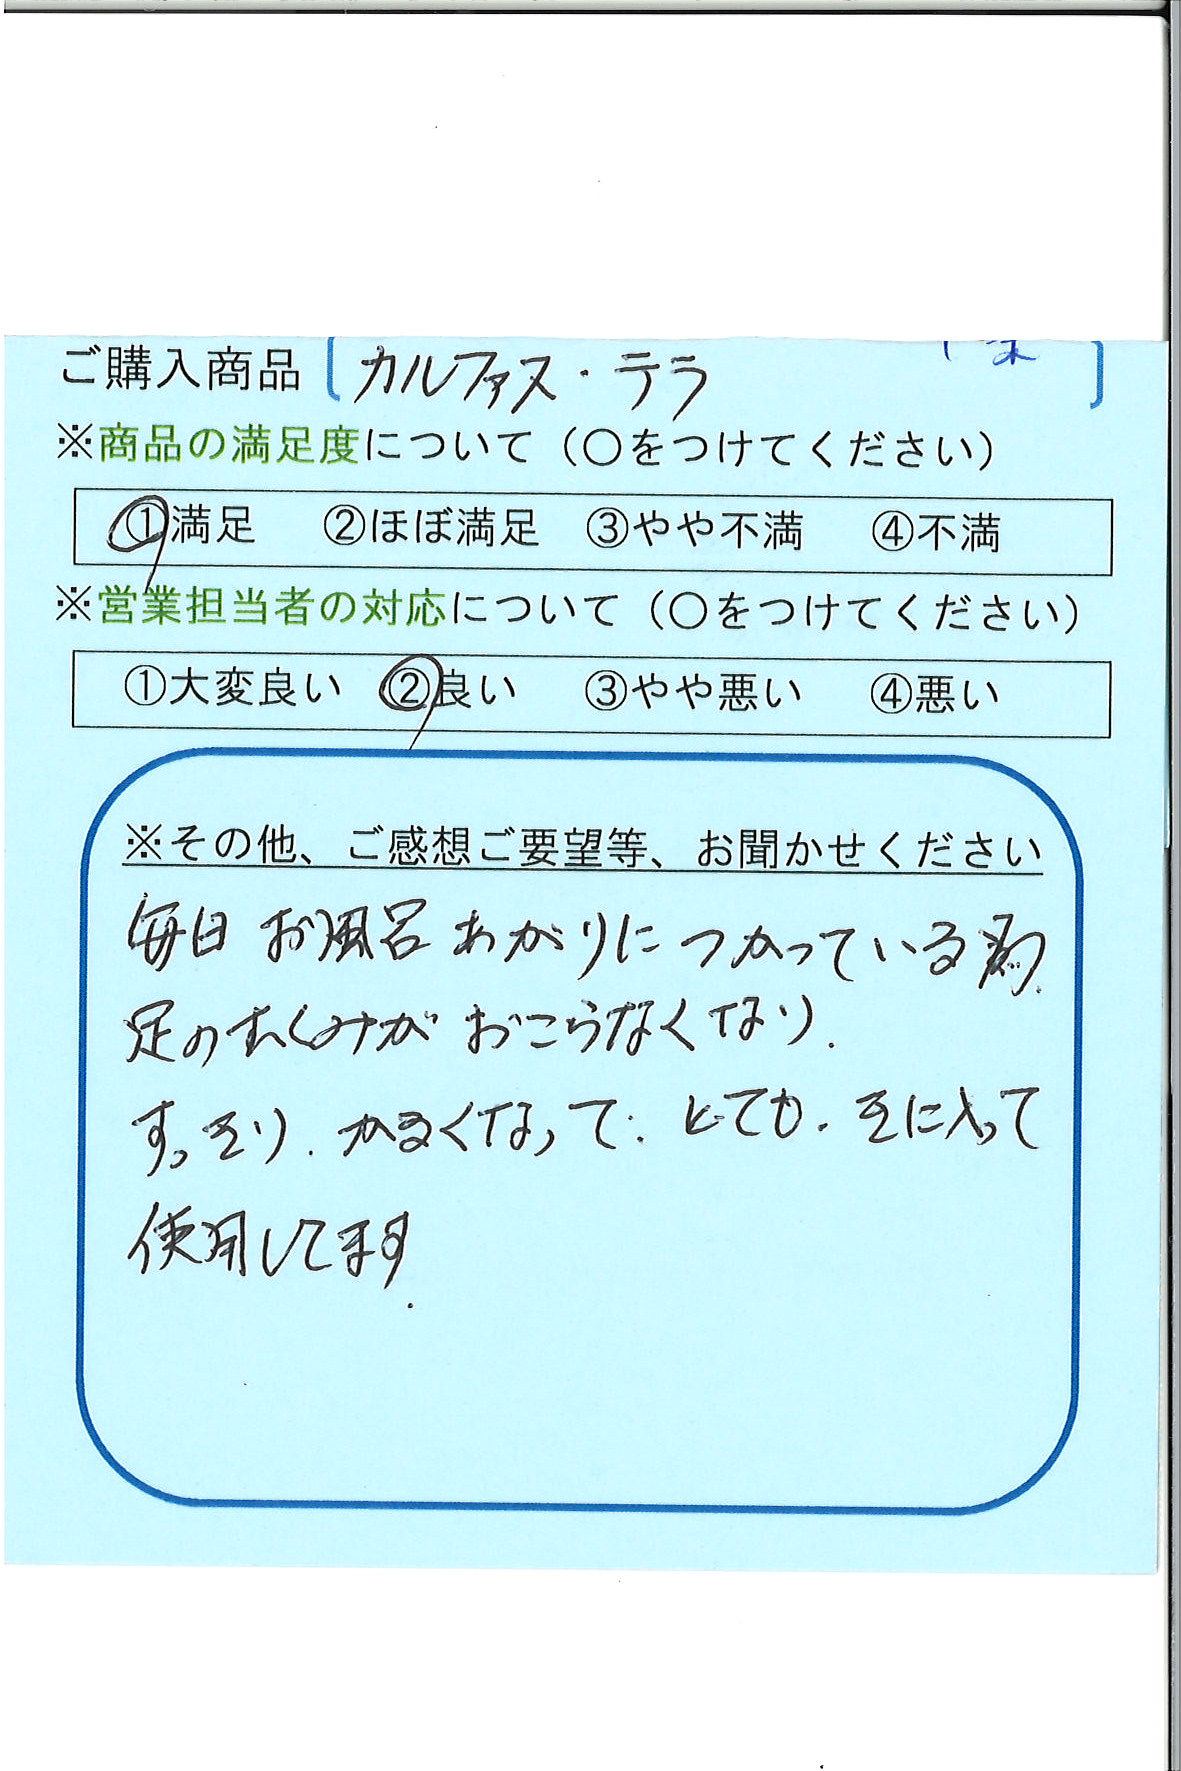 ご購入商品 [カルファス・テラ]
※商品の満足度について(○をつけてください)
①満足 ②ほぼ満足 ③やや不満 ④不満
※営業担当者の対応について(○をつけてください)
①大変良い ②良い ③やや悪い ④悪い
※その他、ご感想ご要望等、お聞かせください
毎日 お風呂 あがりに つかっている為
足のむくみが おこらなくなり.
すっきり. かるくなって. とても. きに入って
使用してます.